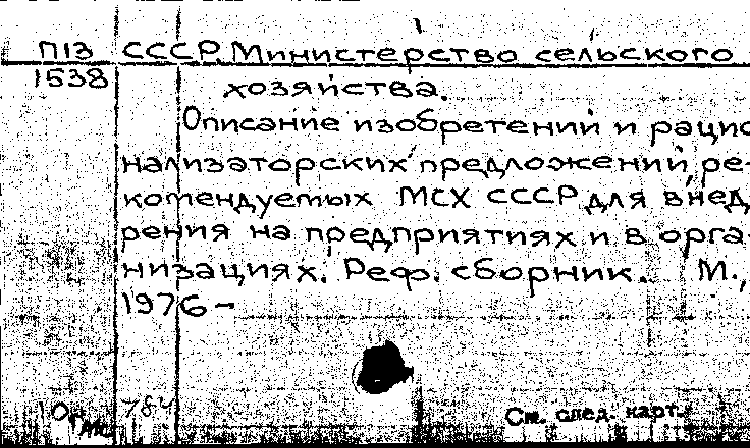 П13 СССР. Министерство сельского
1538 хозяйства.
Описание изобретений и рацио
нализаторских предложений, ре-
комендуемых МСХ СССР для внед
рения на предприятиях и в орга-
низациях. Реф. сборник. М.,
1976-
784
См. след. карт.